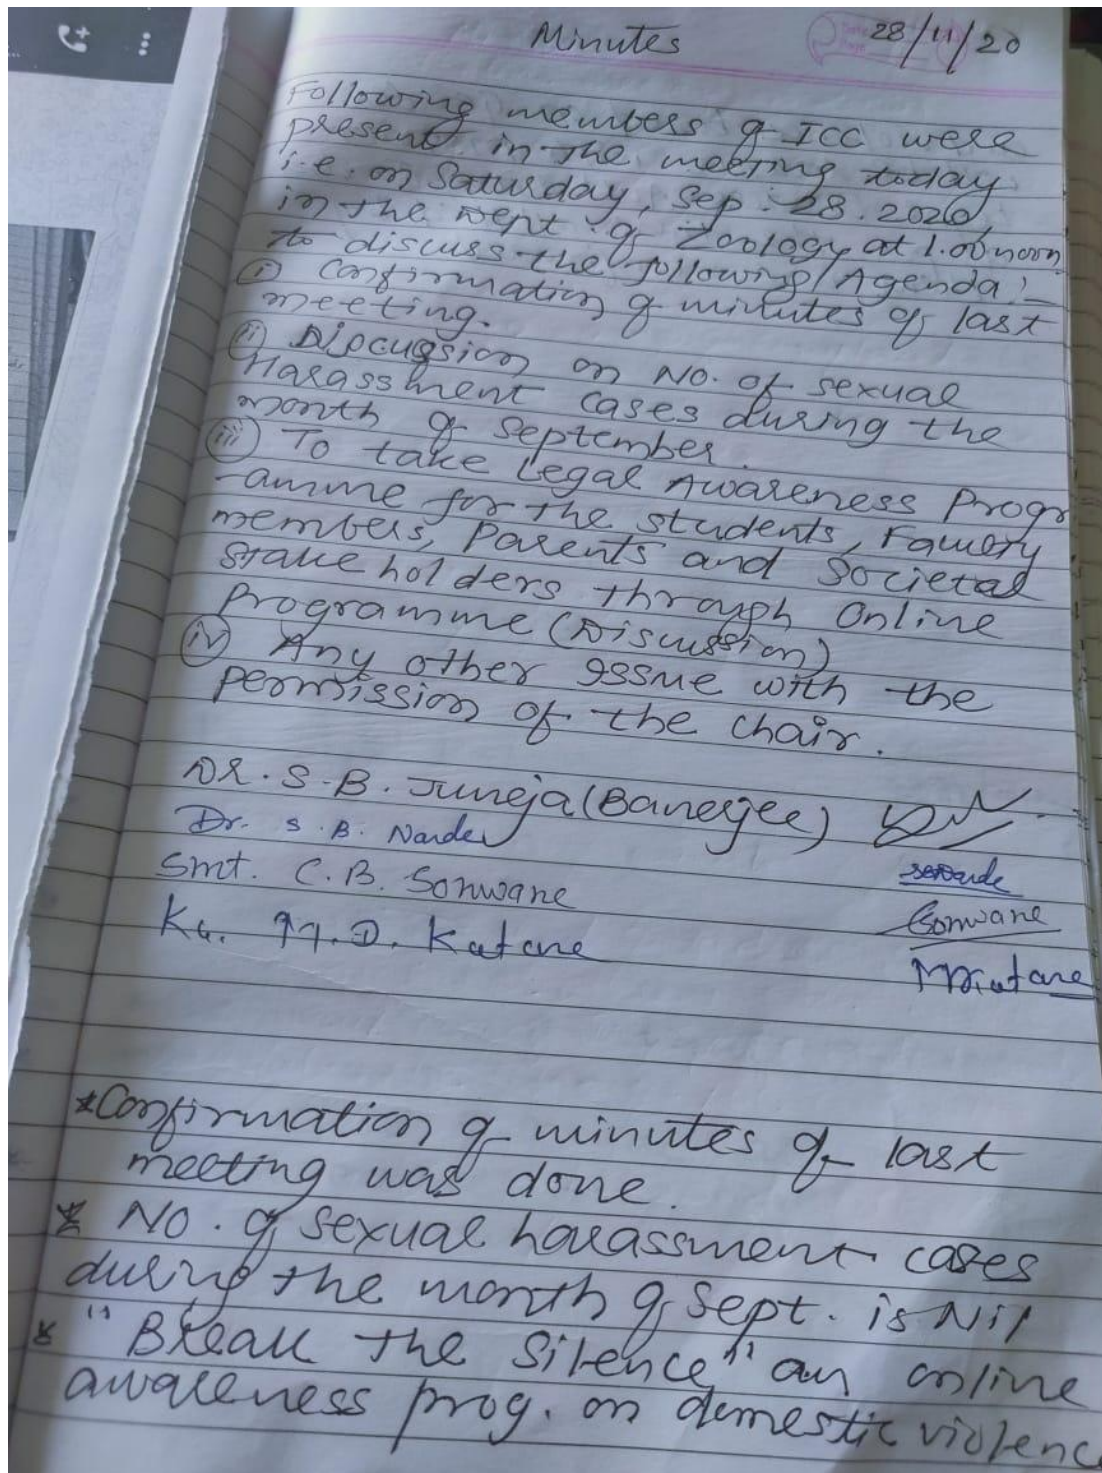 Minutes
28/11/20
Following members of ICC were
present in the meeting today
i.e. on Saturday, Sep. 28. 2020,
in the Dept. of Zoology at 1.00 noon
to discuss the following Agenda:-
(i) Confirmation of minutes of last
meeting.
(ii) Discussion on No. of sexual
Harassment cases during the
month of September.
(iii) To take Legal Awareness Progr
-amme for the students, Faculty
members, Parents and Societal
Stake holders through Online
Programme (Discussion)
(iv) Any other issue with the
permission of the Chair.
DR. S.B. Juneja (Banerjee)
Dr. S.B. Narde
Smt. C.B. Sonwane
Sonwane
Ku. M.D. Katare
MDKatare
*Confirmation of minutes of last
meeting was done.
* No. of sexual harassment cases
during the month of Sept. is Nil
* "Break the Silence" an online
awareness prog. on domestic violenc